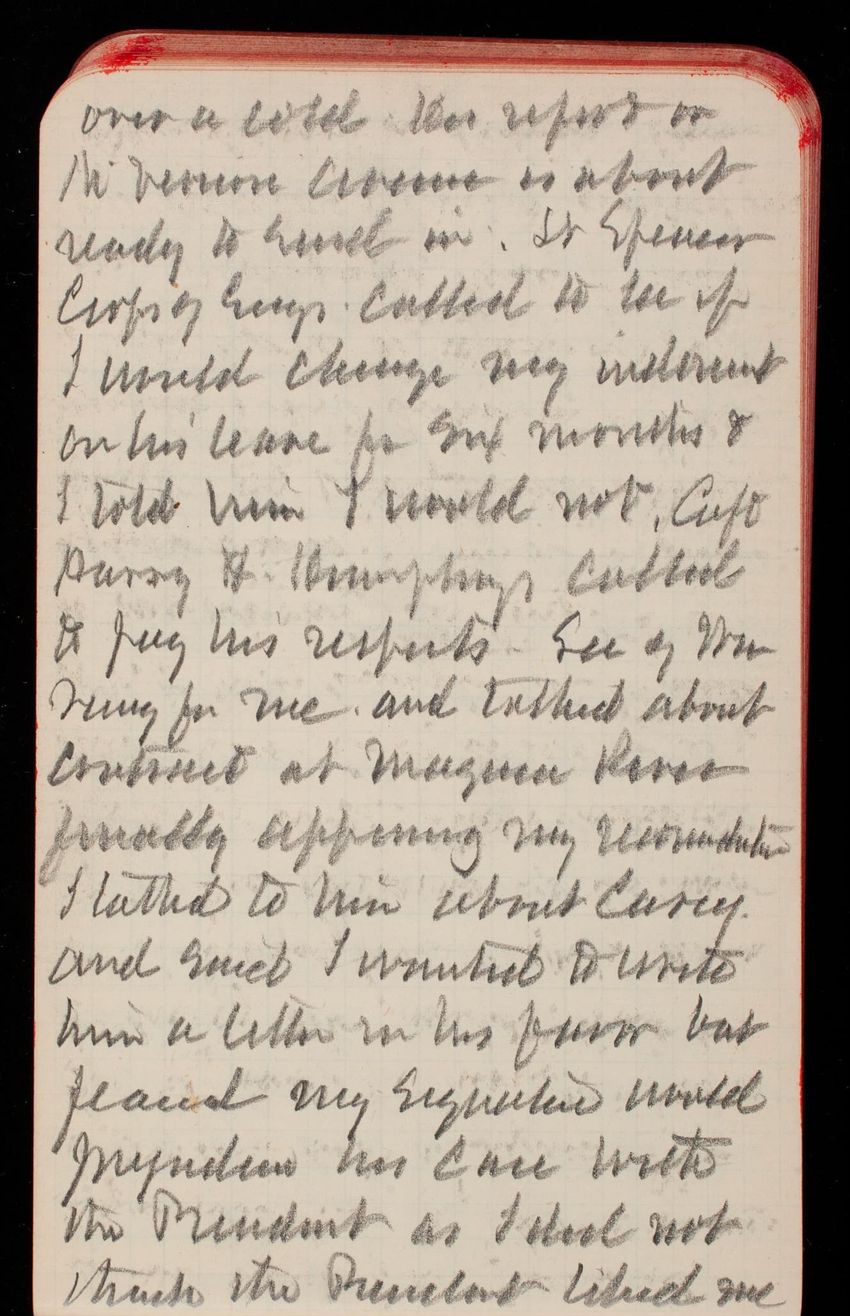 over a cold. His report on
Mt Vernon Avenue is about
ready to send in. Lt Spencer
Corps of Engs. called to see if
I would change my indorsmt
on his leave for six months &
I told him I would not. Capt
Harry H. Humphreys called
to pay his respects. Sec of War
rung for me and talked about
contract at Maquon River
finally approving my recomdation
I talked to him about Carey.
and said I wanted to write
him a letter in his favor but
feared my signature would
prejudice his case with
the President as I did not
think the President liked me